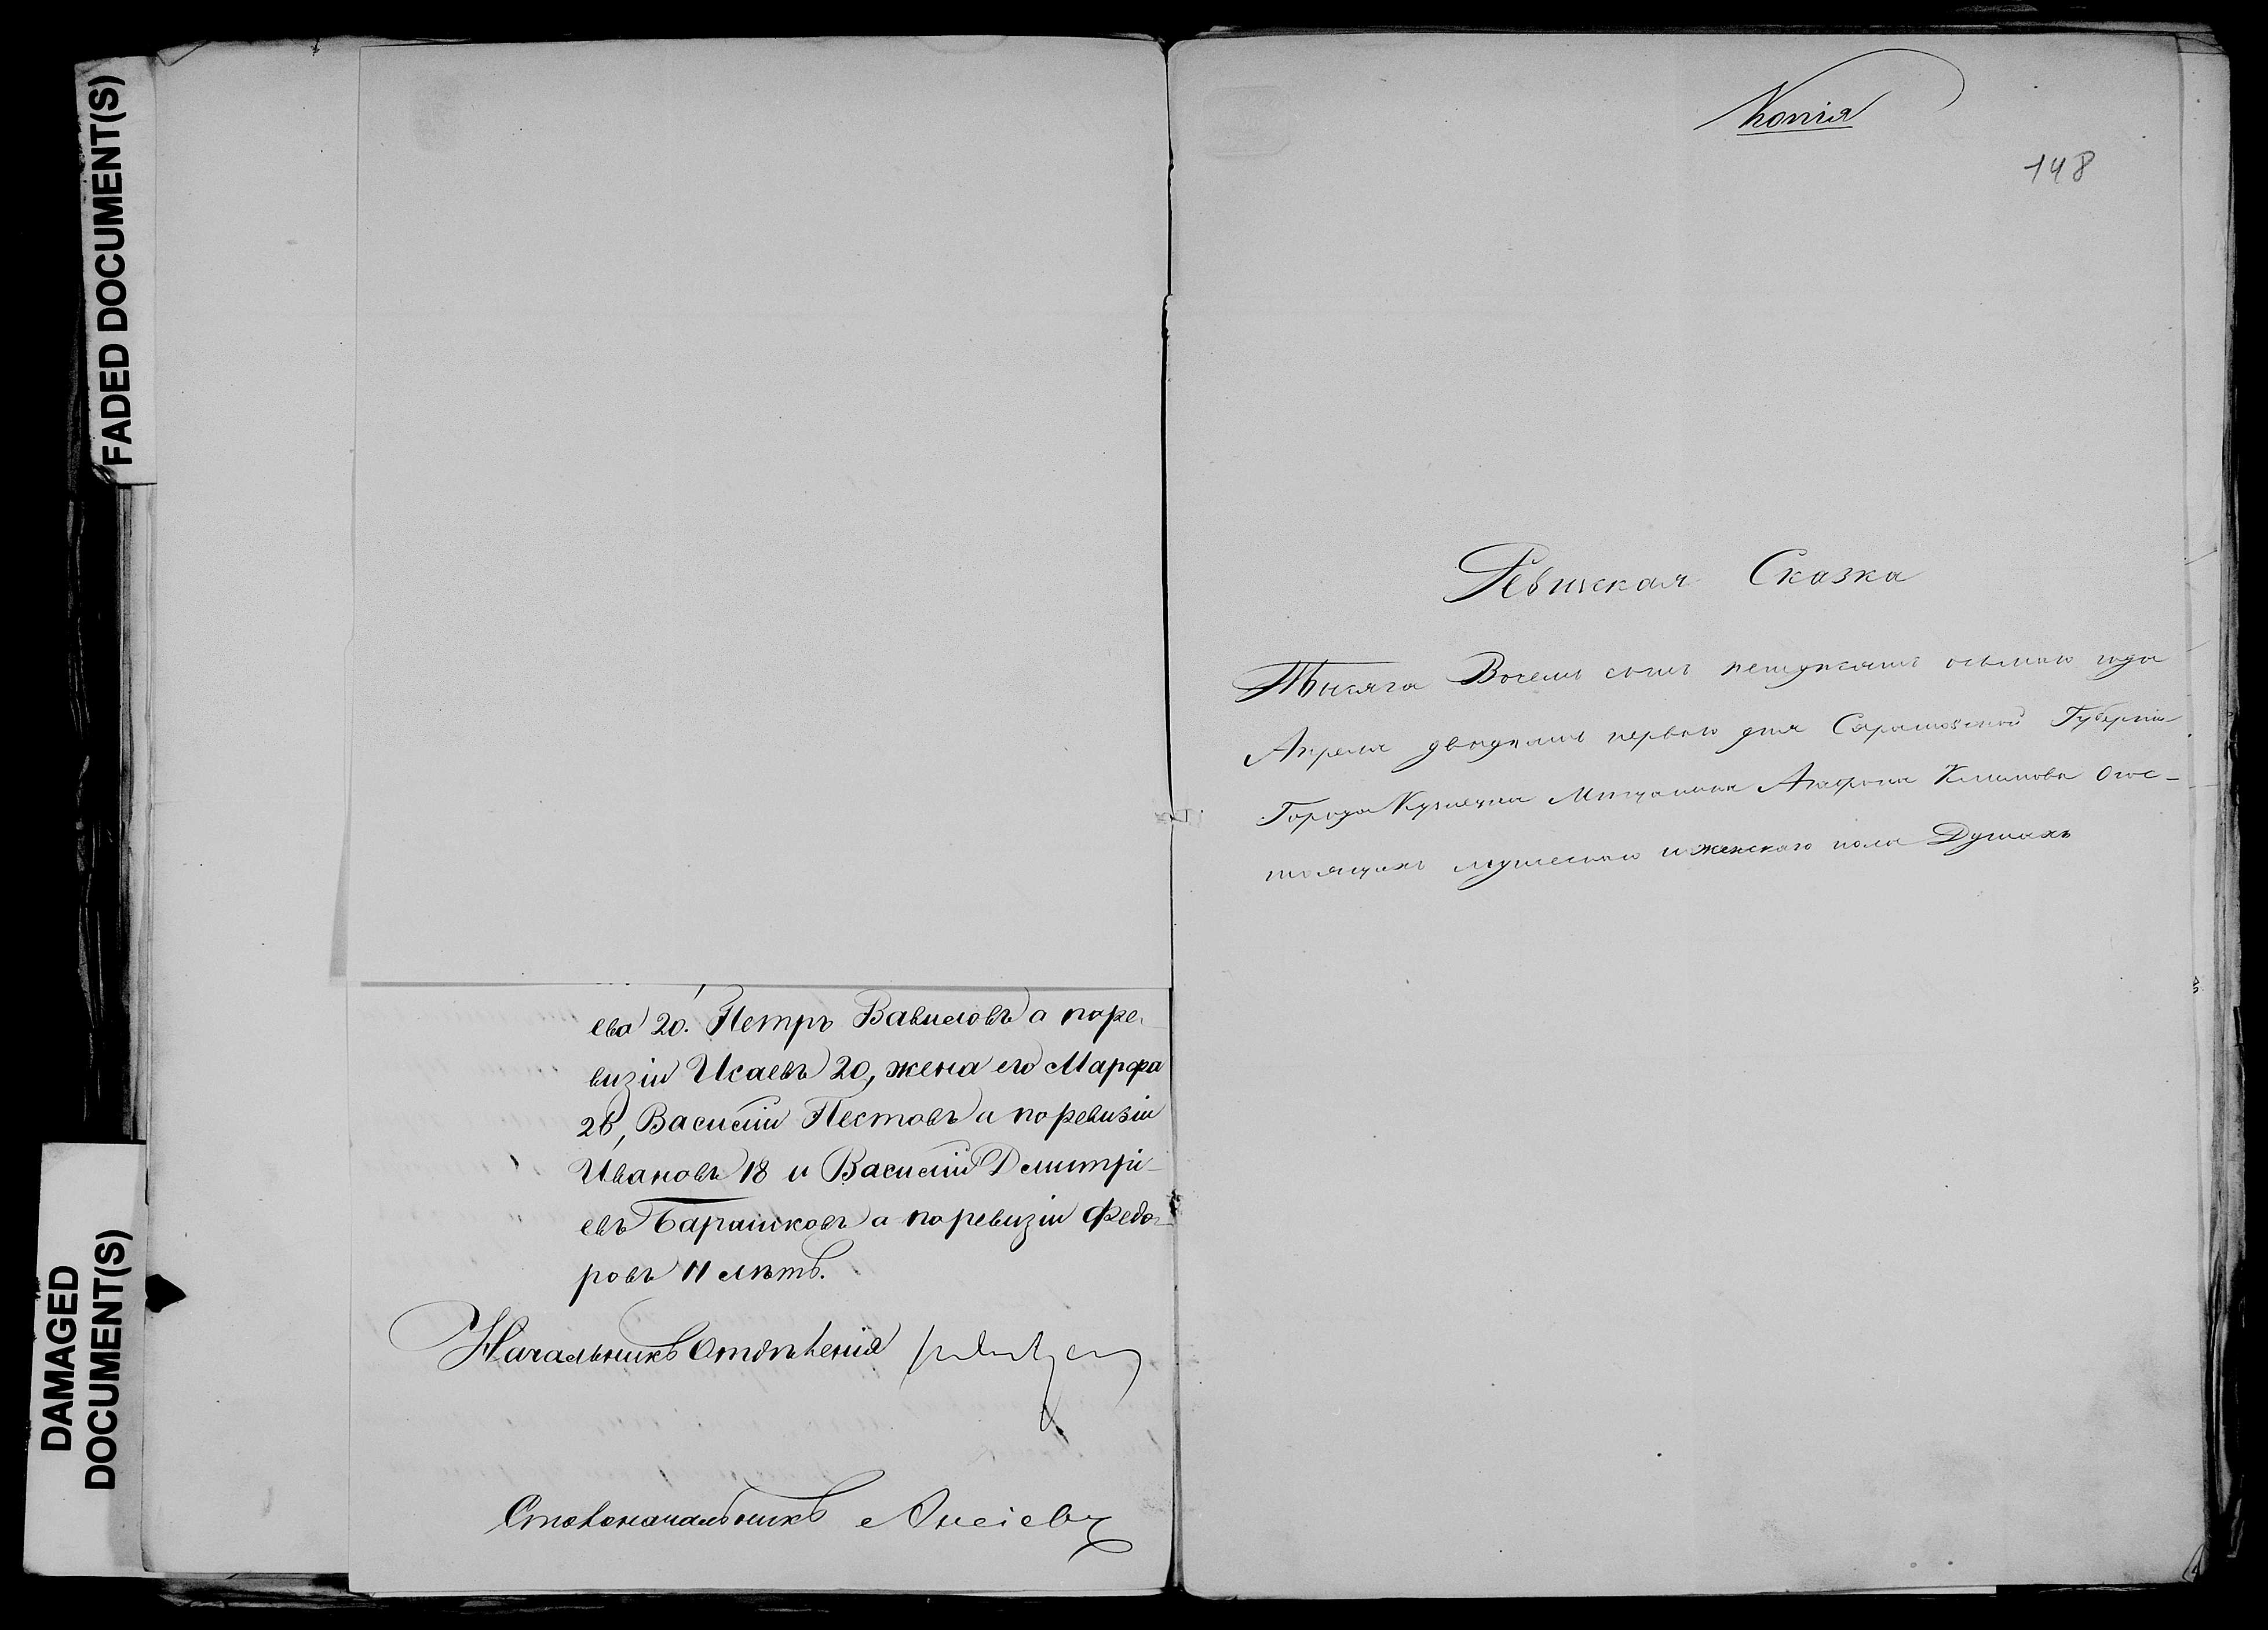 FADED DOCUMENT(S)
DAMAGED
DOCUMENT(S)
ева 20. Петръ Вавиловъ а поре-
визіи Исаевъ 20, жена его Марфа
26, Василій Пестовъ а поревизіи
Ивановъ 18 и Василій Дмитрі-
евъ Барашковъ а поревизіи Федо-
ровъ 11 лѣтъ.
Начальникъ Отдѣленія
Столоначальникъ
Копія
148
Ревиская Сказка
Тысяча Восемь сотъ петдесятъ осьмаго года
Апреля двадцать перваго дня Саратовской Губерніи
Города Кузнецка Мещанина Агафона Климова О сос-
тоящихъ мужескаго и женскаго пола Душахъ